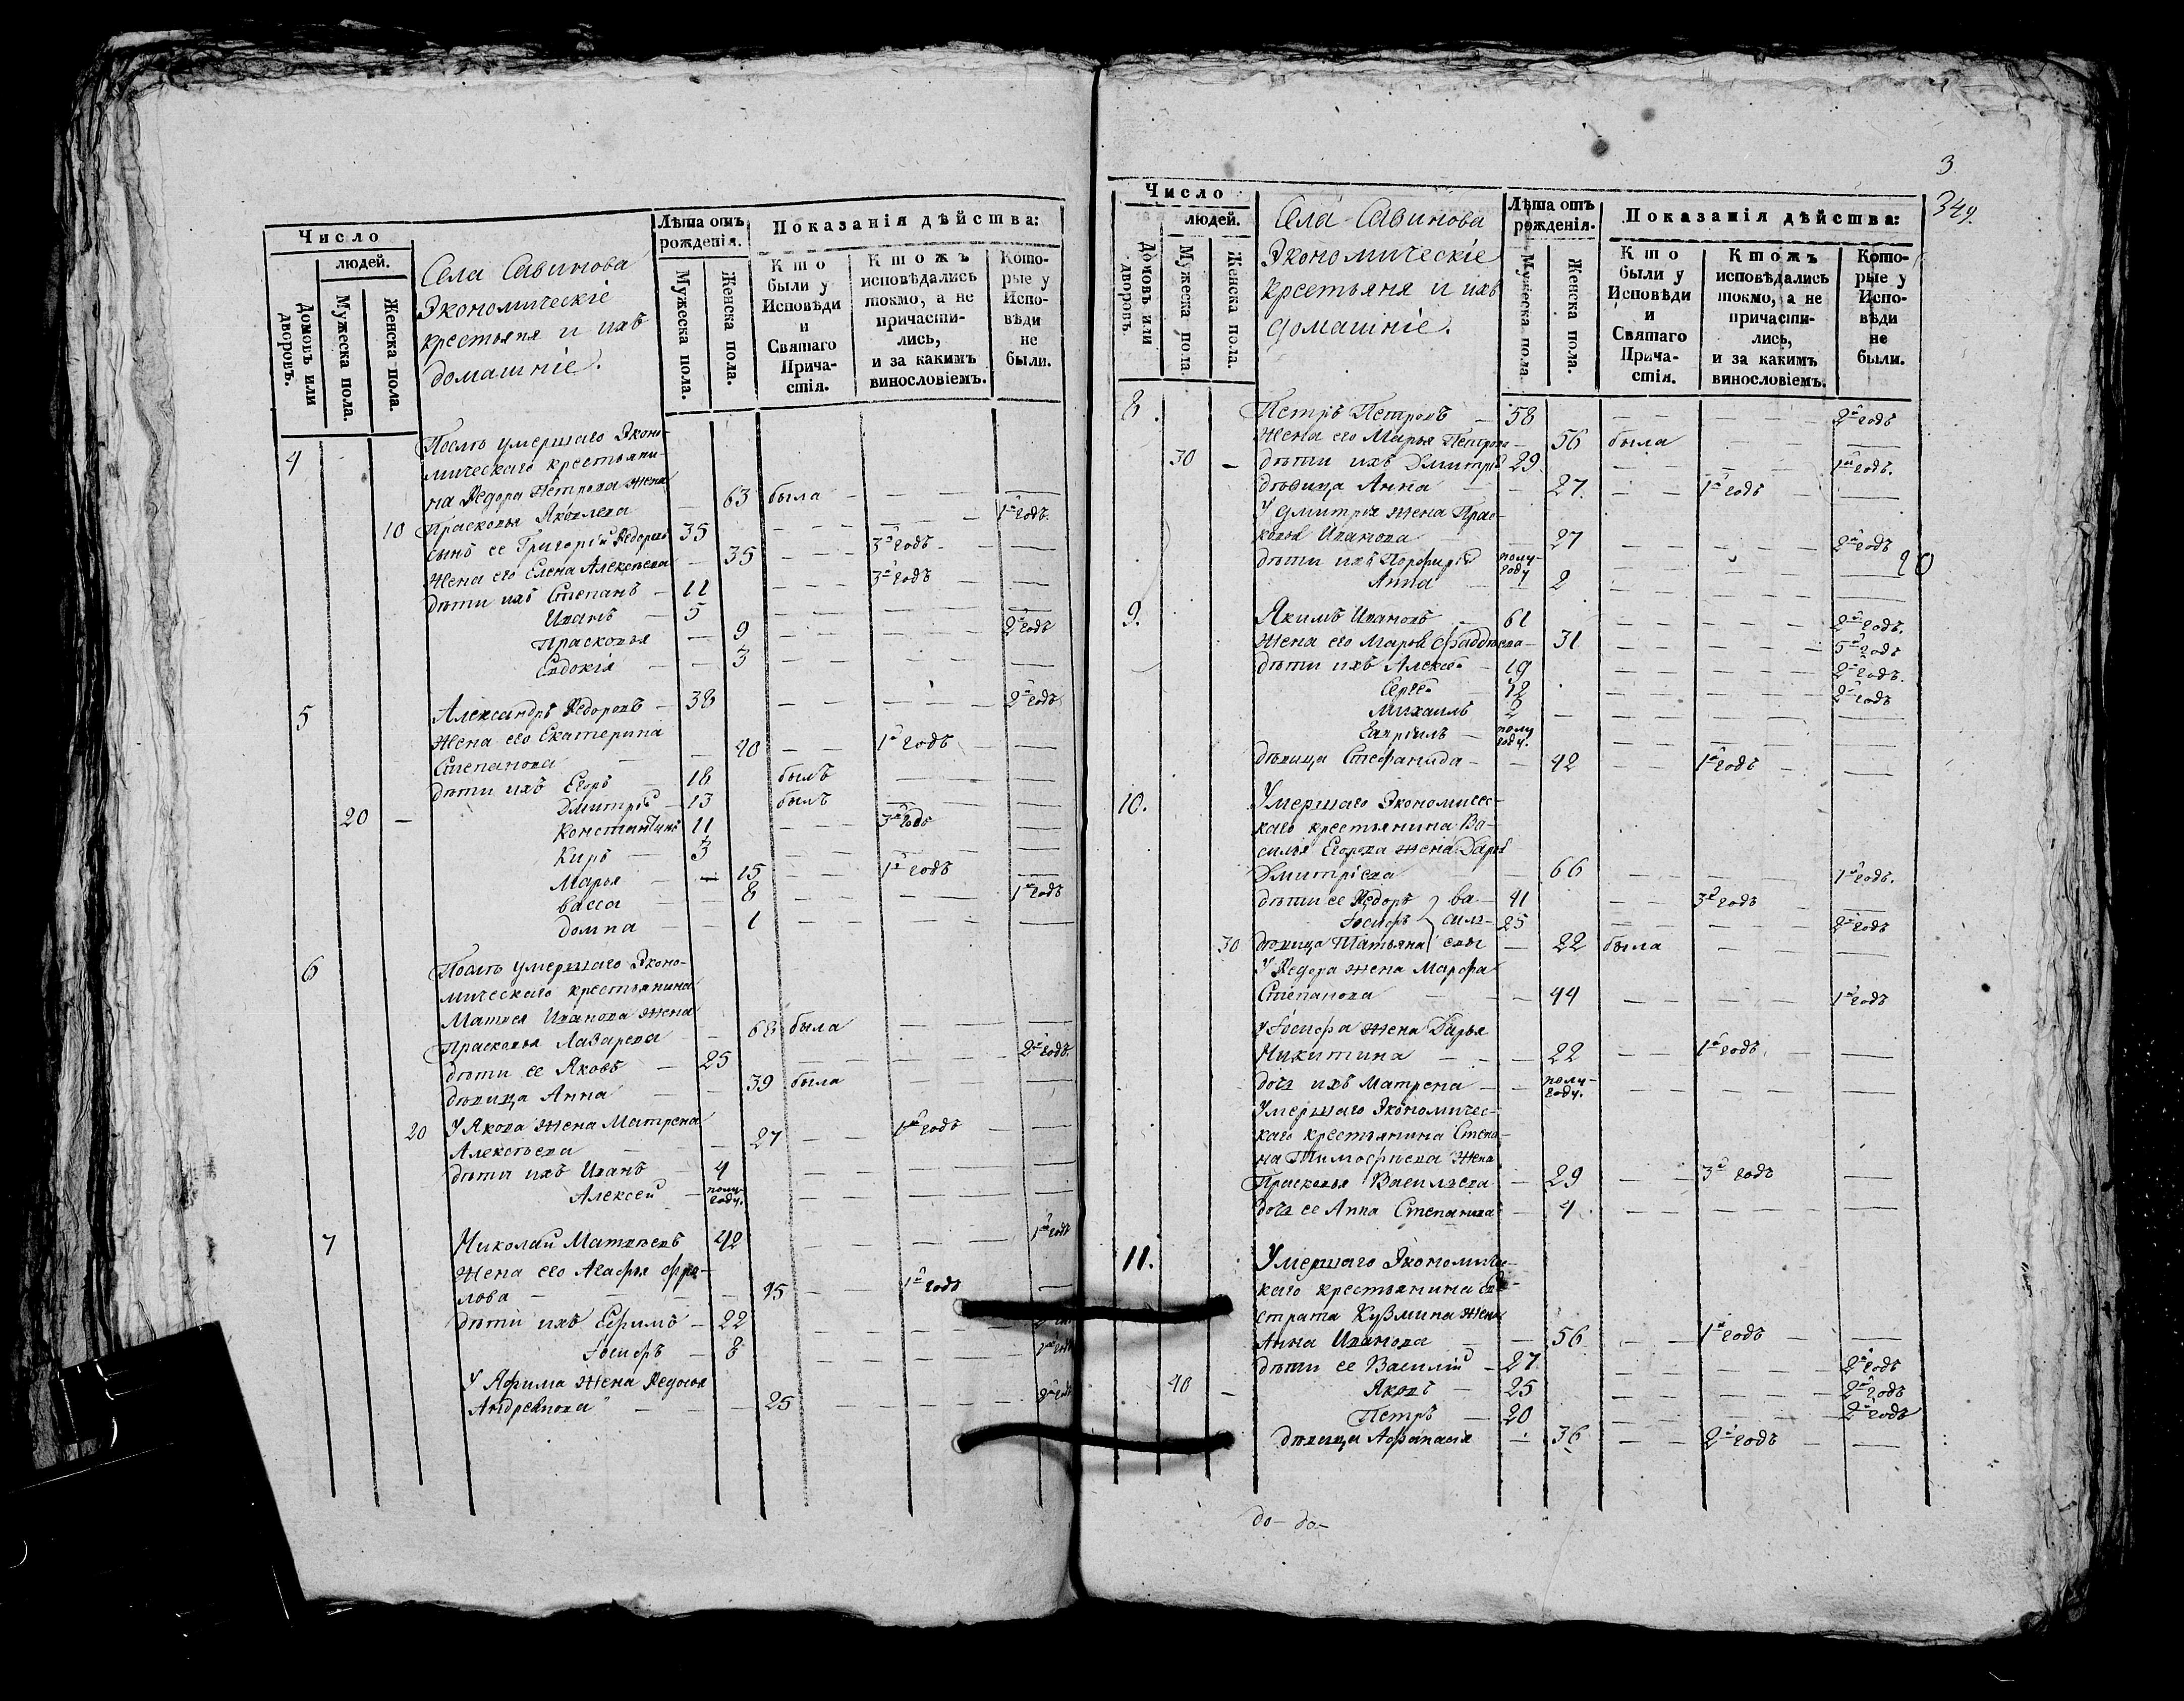 Число
людей.
Домовъ или дворовъ.
Мужеска пола.
Женска пола.
Села Савинова
Экономическіе
крестьяня и ихъ
домашніе.
Лѣта отъ рожденія.
Мужеска пола.
Женска пола.
Показанія дѣйства:
Кто были у Исповѣди и Святаго Прича-стія.
Ктожъ исповѣдались токмо, а не причасти-лись, и за какимъ винословіемъ.
Кото-рые у Испо-вѣди не были.
4 Послѣ умершаго Эконо-
мическаго крестьяни-
на Ѳедора Петрова жена
10 Прасковья Яковлева — 63 была — — —
сынъ ее Григорій Ѳедоровъ 35 — — — 1й годъ.
жена его Елена Алексѣева — 35 — — 3й годъ — —
дѣти ихъ Степанъ — 11 — — 3й годъ — —
Иванъ — 5 — — — —
Прасковья — 9 — — — 2й годъ
Евдокія — 3 — — — —
5 Александръ Ѳедоровъ — 38 — — — 2й годъ
жена его Екатерина
Степанова — 40 — — 1й годъ —
дѣти ихъ Егоръ 18 былъ — — —
Дмитрій — 13 былъ — —
20 — Константинъ 11 — — 3й годъ —
Киръ — 3 — — — —
Марья — 15 — — 1й годъ —
Васса — 8 — — — 1й годъ
Домна — 1 — — — —
6 Послѣ умершаго Эконо-
мическаго крестьянина
Матвея Иванова жена
Прасковья Лазарева — 68 была — — —
дѣти ее Яковъ — 25 — — — 2й годъ.
дѣвица Анна — 39 была — — —
20 У Якова жена Матрена
Алексѣева — 27 — — 1й годъ — —
дѣти ихъ Иванъ 4 — — — —
Алексей — полу-году. — — — —
7 Николай Матвѣевъ 42 — — — 1й годъ
жена его Агафья Фро-
лова — — 45 — 1й годъ —
дѣти ихъ Ефимъ — 22 — — —
Іосифъ — 8 — — —
У Яфима жена Ѳедосья
Андреянова — — 25 — — —
3
349.
Число
людей.
Домовъ или дворовъ.
Мужеска пола.
Женска пола.
Села Савинова
Экономическіе
крестьяня и ихъ
домашніе.
Лѣта отъ рожденія.
Мужеска пола.
Женска пола.
Показанія дѣйства:
Кто были у Исповѣди и Святаго Прича-стія.
Ктожъ исповѣдались токмо, а не причасти-лись, и за какимъ винословіемъ.
Кото-рые у Испо-вѣди не были.
8. Петръ Петровъ — 58 — — — 2й годъ
жена его Марья Петрова — 56 была — — —
30 — дѣти ихъ Дмитрій 29. — — — 1й годъ.
дѣвица Анна — 27. — — 1й годъ — —
У Дмитрія жена Прас-
ковья Иванова — 27 — — — 2й годъ
дѣти ихъ Порфирій полу-году — — —
Анна — 2 — — — —
9. Якимъ Ивановъ — 61 — — — 2й годъ.
жена его Марѳа Фаддѣева — 31 — — — 5й годъ
дѣти ихъ Алексѣй — 19 — — — 2й годъ.
Сергѣй 12 — — — 2й годъ
Михаилъ 2 — — — —
Гавріилъ — полу году. — — — —
дѣвица Стефанида — — 42 — — 1й годъ — —
10. Умершаго Экономичес-
каго крестьянина Ва-
силья Егорова жена Дарья
Дмитріева — 66 — — — 1й годъ.
дѣти ее Ѳедоръ ва- 41 — — 3й годъ — —
Іосифъ силь- 25 — — — 2й годъ
30 дѣвица Татьяна евы — 22 была — — —
У Ѳедора жена Марфа
Степанова — — 44 — — — 1й годъ
У Іосифа жена Дарья
Никитина — — 22 — — 1й годъ. —
дочь ихъ Матрена — — полу-году. — — — —
Умершаго Экономичес-
каго крестьянина Степа-
на Тимофѣева жена
Прасковья Васильева — 29 — — 3й годъ —
дочь ее Анна Степанова — 4 — — — —
11. Умершаго Экономичес-
каго крестьянина Ев-
страта Кузмина жена
Анна Иванова — 56 — — 1й годъ — —
дѣти ее Василій — 27 — — — 2й годъ
40 — Яковъ — 25 — — — 2й годъ
Петръ — 20 — — — 2й годъ
дѣвица Афанасія — 36 — — 2й годъ — —
до- до-